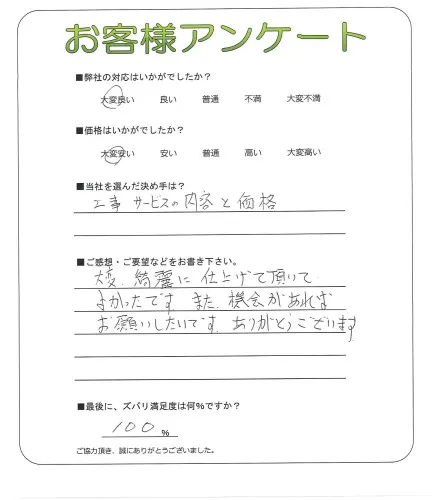 お客様アンケート
■弊社の対応はいかがでしたか?
大変良い 良い 普通 不満 大変不満
■価格はいかがでしたか?
大変安い 安い 普通 高い 大変高い
■当社を選んだ決め手は?
工事 サービスの内容と価格
■ご感想・ご要望などをお書き下さい。
大変、綺麗に仕上げて頂いて
よかったです。また、機会があれば
お願いしたいです。ありがとうございます
■最後に、ズバリ満足度は何%ですか?
100%
ご協力頂き、誠にありがとうございました。